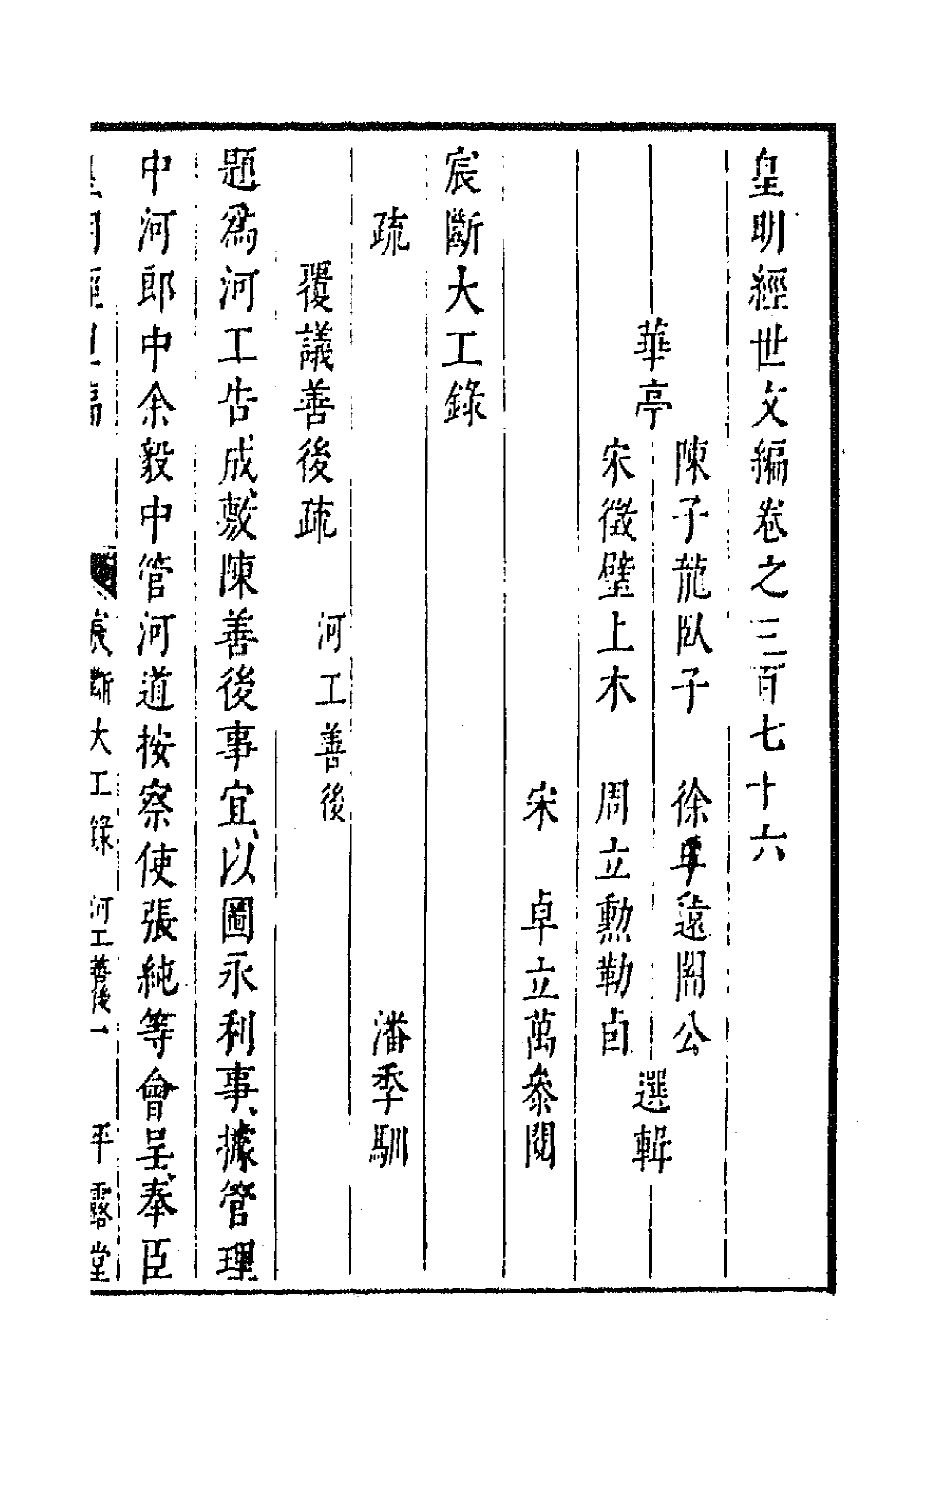 皇明經世文編卷之三百七十六
華亭
陳子龍臥子　徐孚遠闇公
宋徵璧上木　周立勲勒卣
選輯
宋　卓立萬叅閱
宸斷大工錄
疏　潘季馴
覆議善後疏　河工善後
題爲河工告成、敷陳善後事宜、以圖永利事、據管理
中河郎中余毅中管河道按察使張純等會呈、奉臣
皇明經世文編　宸斷大工錄　河工善後　一　平露堂